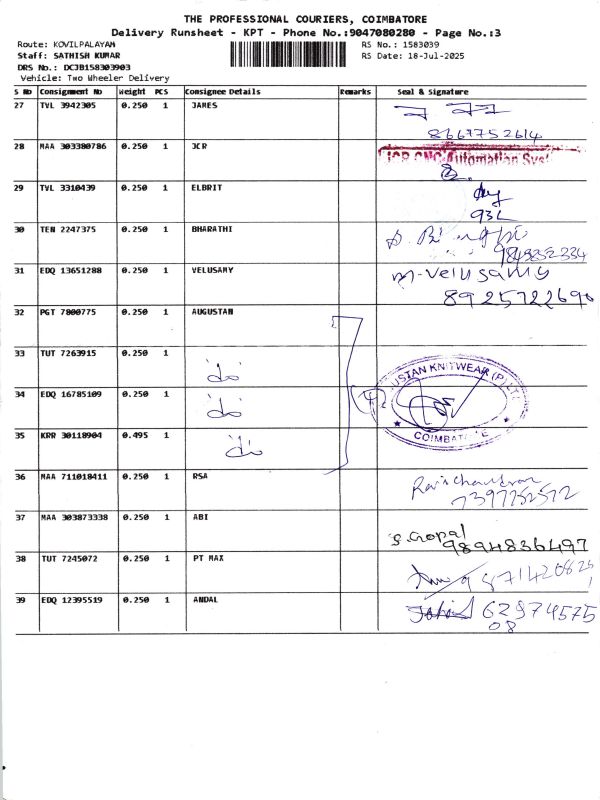 THE PROFESSIONAL COURIERS, COIMBATORE
Delivery Runsheet - KPT - Phone No.:9047080280 - Page No.:3
Route: KOVILPALAYAM
RS No.: 1583039
Staff: SATHISH KUMAR
RS Date: 18-Jul-2025
DRS No.: DCJB158303903
Vehicle: Two Wheeler Delivery
S No Consignment No Weight PCS Consignee Details Remarks Seal & Signature
27 TVL 3942305 0.250 1 JAMES
8667752614
28 MAA 303380786 0.250 1 JCR
JCR CNC Automation Syst
29 TVL 3310439 0.250 1 ELBRIT
932
30 TEN 2247375 0.250 1 BHARATHI
9843252334
31 EDQ 13651288 0.250 1 VELUSAMY
m.velusamy
8925722690
32 PGT 7800775 0.250 1 AUGUSTAN
33 TUT 7263915 0.250 1
34 EDQ 16785109 0.250 1
USTAN KNITWEAR (P) LT
COIMBAT
35 KRR 30118904 0.495 1
36 MAA 711018411 0.250 1 RSA
Ravichandran
7397752572
37 MAA 303873338 0.250 1 ABI
S.Gopal
9894836497
38 TUT 7245072 0.250 1 PT MAX
39 EDQ 12395519 0.250 1 ANDAL
62974575
08